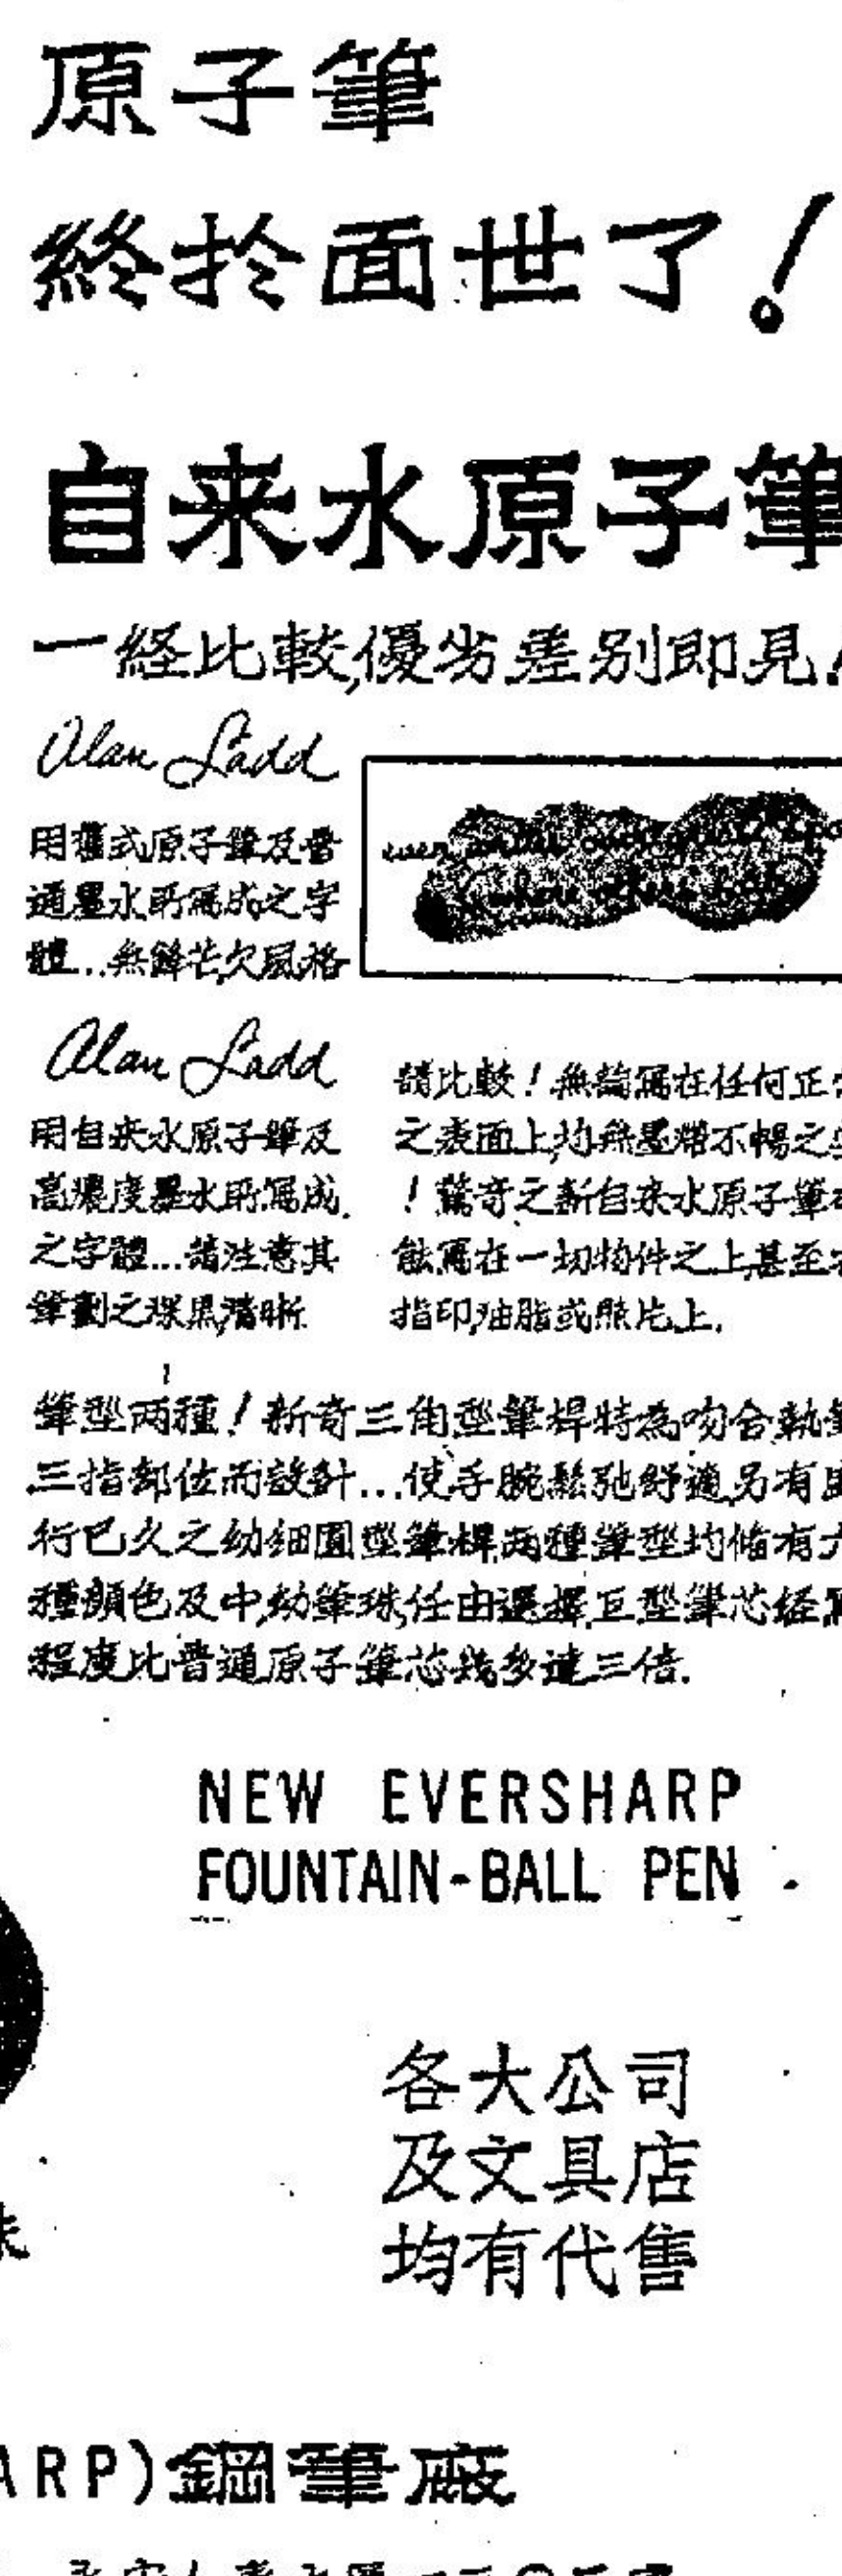 原子筆
終於面世了！
自来水原子筆
一経比較,優劣差别即見！
Alan Ladd
用舊式原子筆及普
通墨水所寫成之字
體...無鋒芒,欠風格
Alan Ladd
用自来水原子筆及
高濃度墨水所寫成
之字體...請注意其
筆劃之深黑,清晰
請比較！無論寫在任何正
之表面上,均無墨不暢之
！驚奇之新自来水原子筆
能寫在一切物件之上,甚至
指印,油脂或照片上.
筆型两種！新奇三角型筆桿特為吻合執筆
三指部位而設計...使手腕鬆弛舒適,另有
行已久之幼細圓型筆桿,两種筆型均備有六
種顏色及中,幼筆珠,任由選擇,巨型筆芯
程度比普通原子筆芯幾多達三倍.
NEW EVERSHARP
FOUNTAIN-BALL PEN
各大公司
及文具店
均有代售
ARP)鋼筆廠